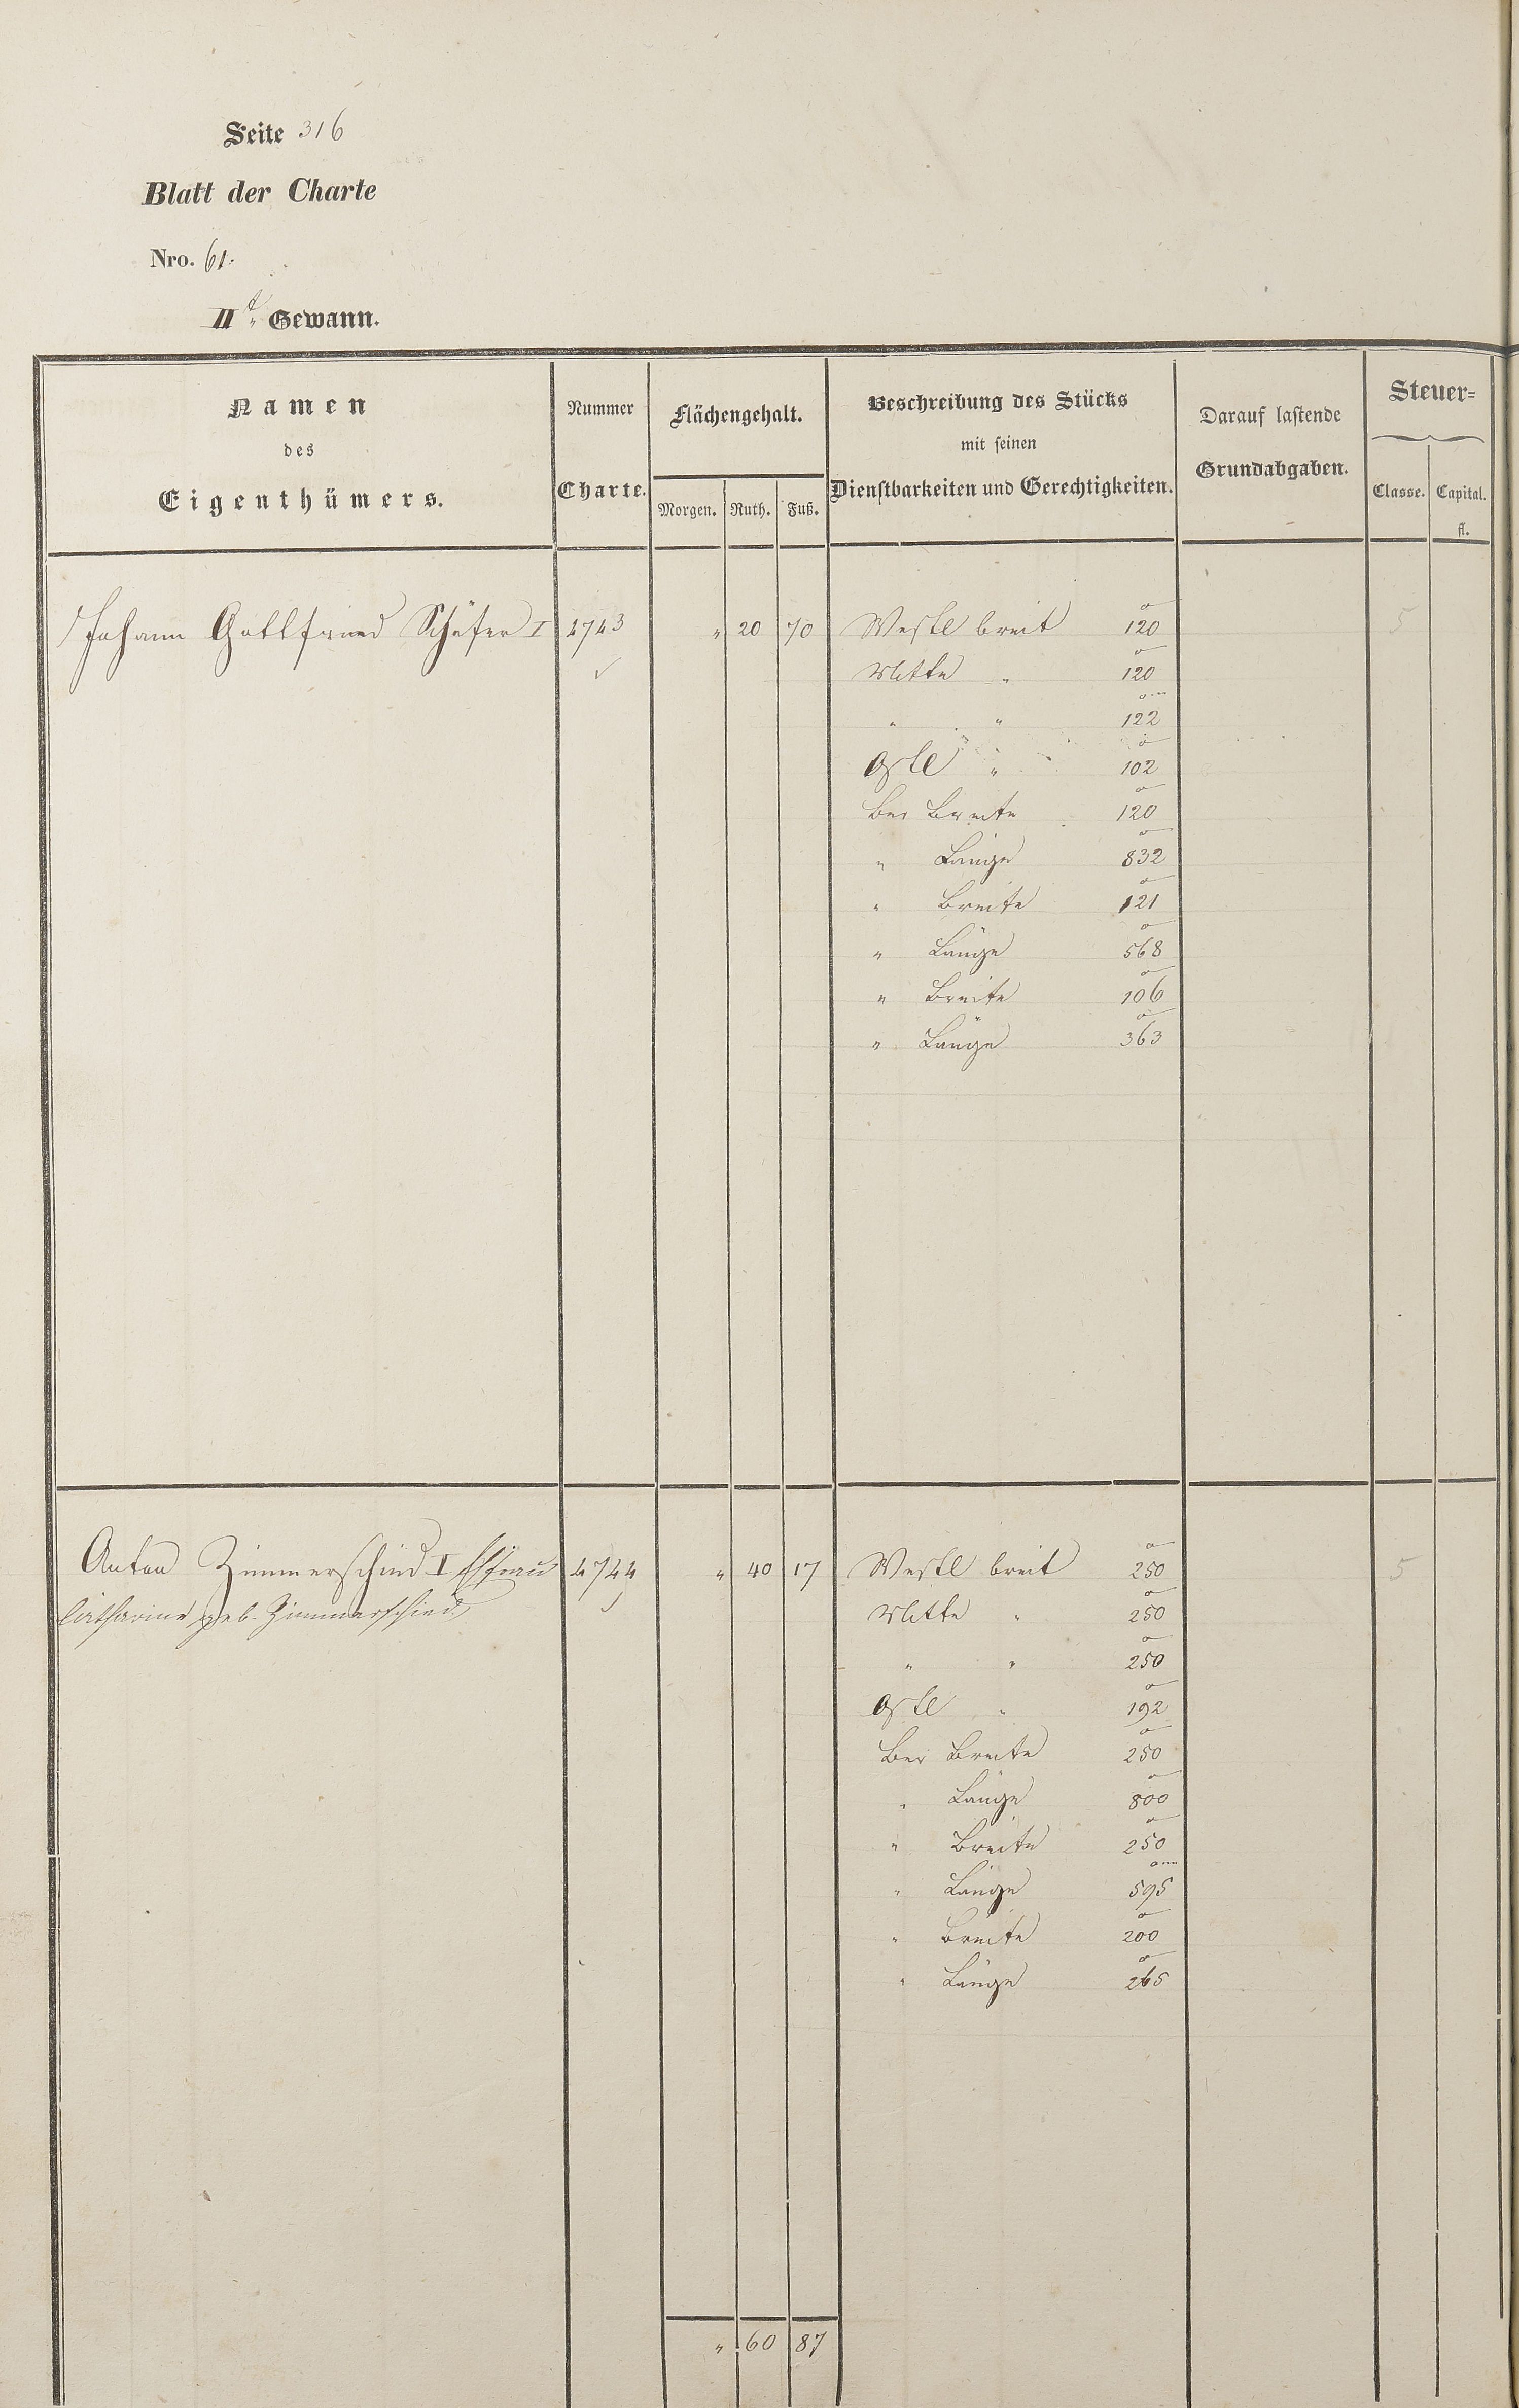 Seite 316
Blatt der Charte
Nro. 61.
IIt. Gewann.
Namen des Eigenthümers.
Nummer Charte.
Flächengehalt.
Morgen. Ruth. Fuß.
Beschreibung des Stücks
mit seinen
Dienstbarkeiten und Gerechtigkeiten.
Darauf lastende
Grundabgaben.
Steuer=
Classe. Capital.
fl.
Johann Gottfried Schäfer I 4743 " 20 70 Westl breit 120 5
Mitte " 120
" " 122
Ostl " 102
Bei Breite 120
" Länge 832
" Breite 121
" Länge 568
" Breite 106
" Länge 363
Anton Zimmerschied I Ehefrau 4744 " 40 17 Westl breit 250 5
Catharine geb. Zimmerschied Mitte " 250
" " 250
Ostl " 192
Bei Breite 250
" Länge 800
" Breite 250
" Länge 595
" Breite 200
" Länge 265
" 60 87